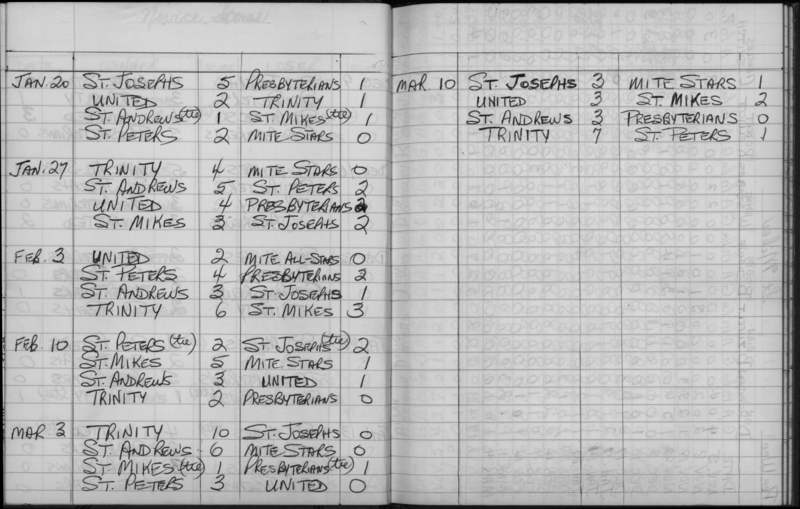 Novice Scores
JAN. 20 ST. JOSEPHS 5 PRESBYTERIANS 1
UNITED 2 TRINITY 1
ST. ANDREWS (tie) 1 ST. MIKES (tie) 1
ST. PETERS 2 MITE STARS 0
JAN. 27 TRINITY 4 MITE STARS 0
ST. ANDREWS 5 ST. PETERS 2
UNITED 4 PRESBYTERIANS 2
ST. MIKES 3 ST. JOSEPHS 2
FEB. 3 UNITED 2 MITE ALL-STARS 0
ST. PETERS 4 PRESBYTERIANS 2
ST. ANDREWS 3 ST. JOSEPHS 1
TRINITY 6 ST. MIKES 3
FEB. 10 ST. PETERS (tie) 2 ST. JOSEPHS (tie) 2
ST. MIKES 5 MITE STARS 1
ST. ANDREWS 3 UNITED 1
TRINITY 2 PRESBYTERIANS 0
MAR 3 TRINITY 10 ST. JOSEPHS 0
ST. ANDREWS 6 MITE STARS 0
ST. MIKES (tie) 1 PRESBYTERIANS (tie) 1
ST. PETERS 3 UNITED 0
MAR 10 ST. JOSEPHS 3 MITE STARS 1
UNITED 3 ST. MIKES 2
ST. ANDREWS 3 PRESBYTERIANS 0
TRINITY 7 ST. PETERS 1